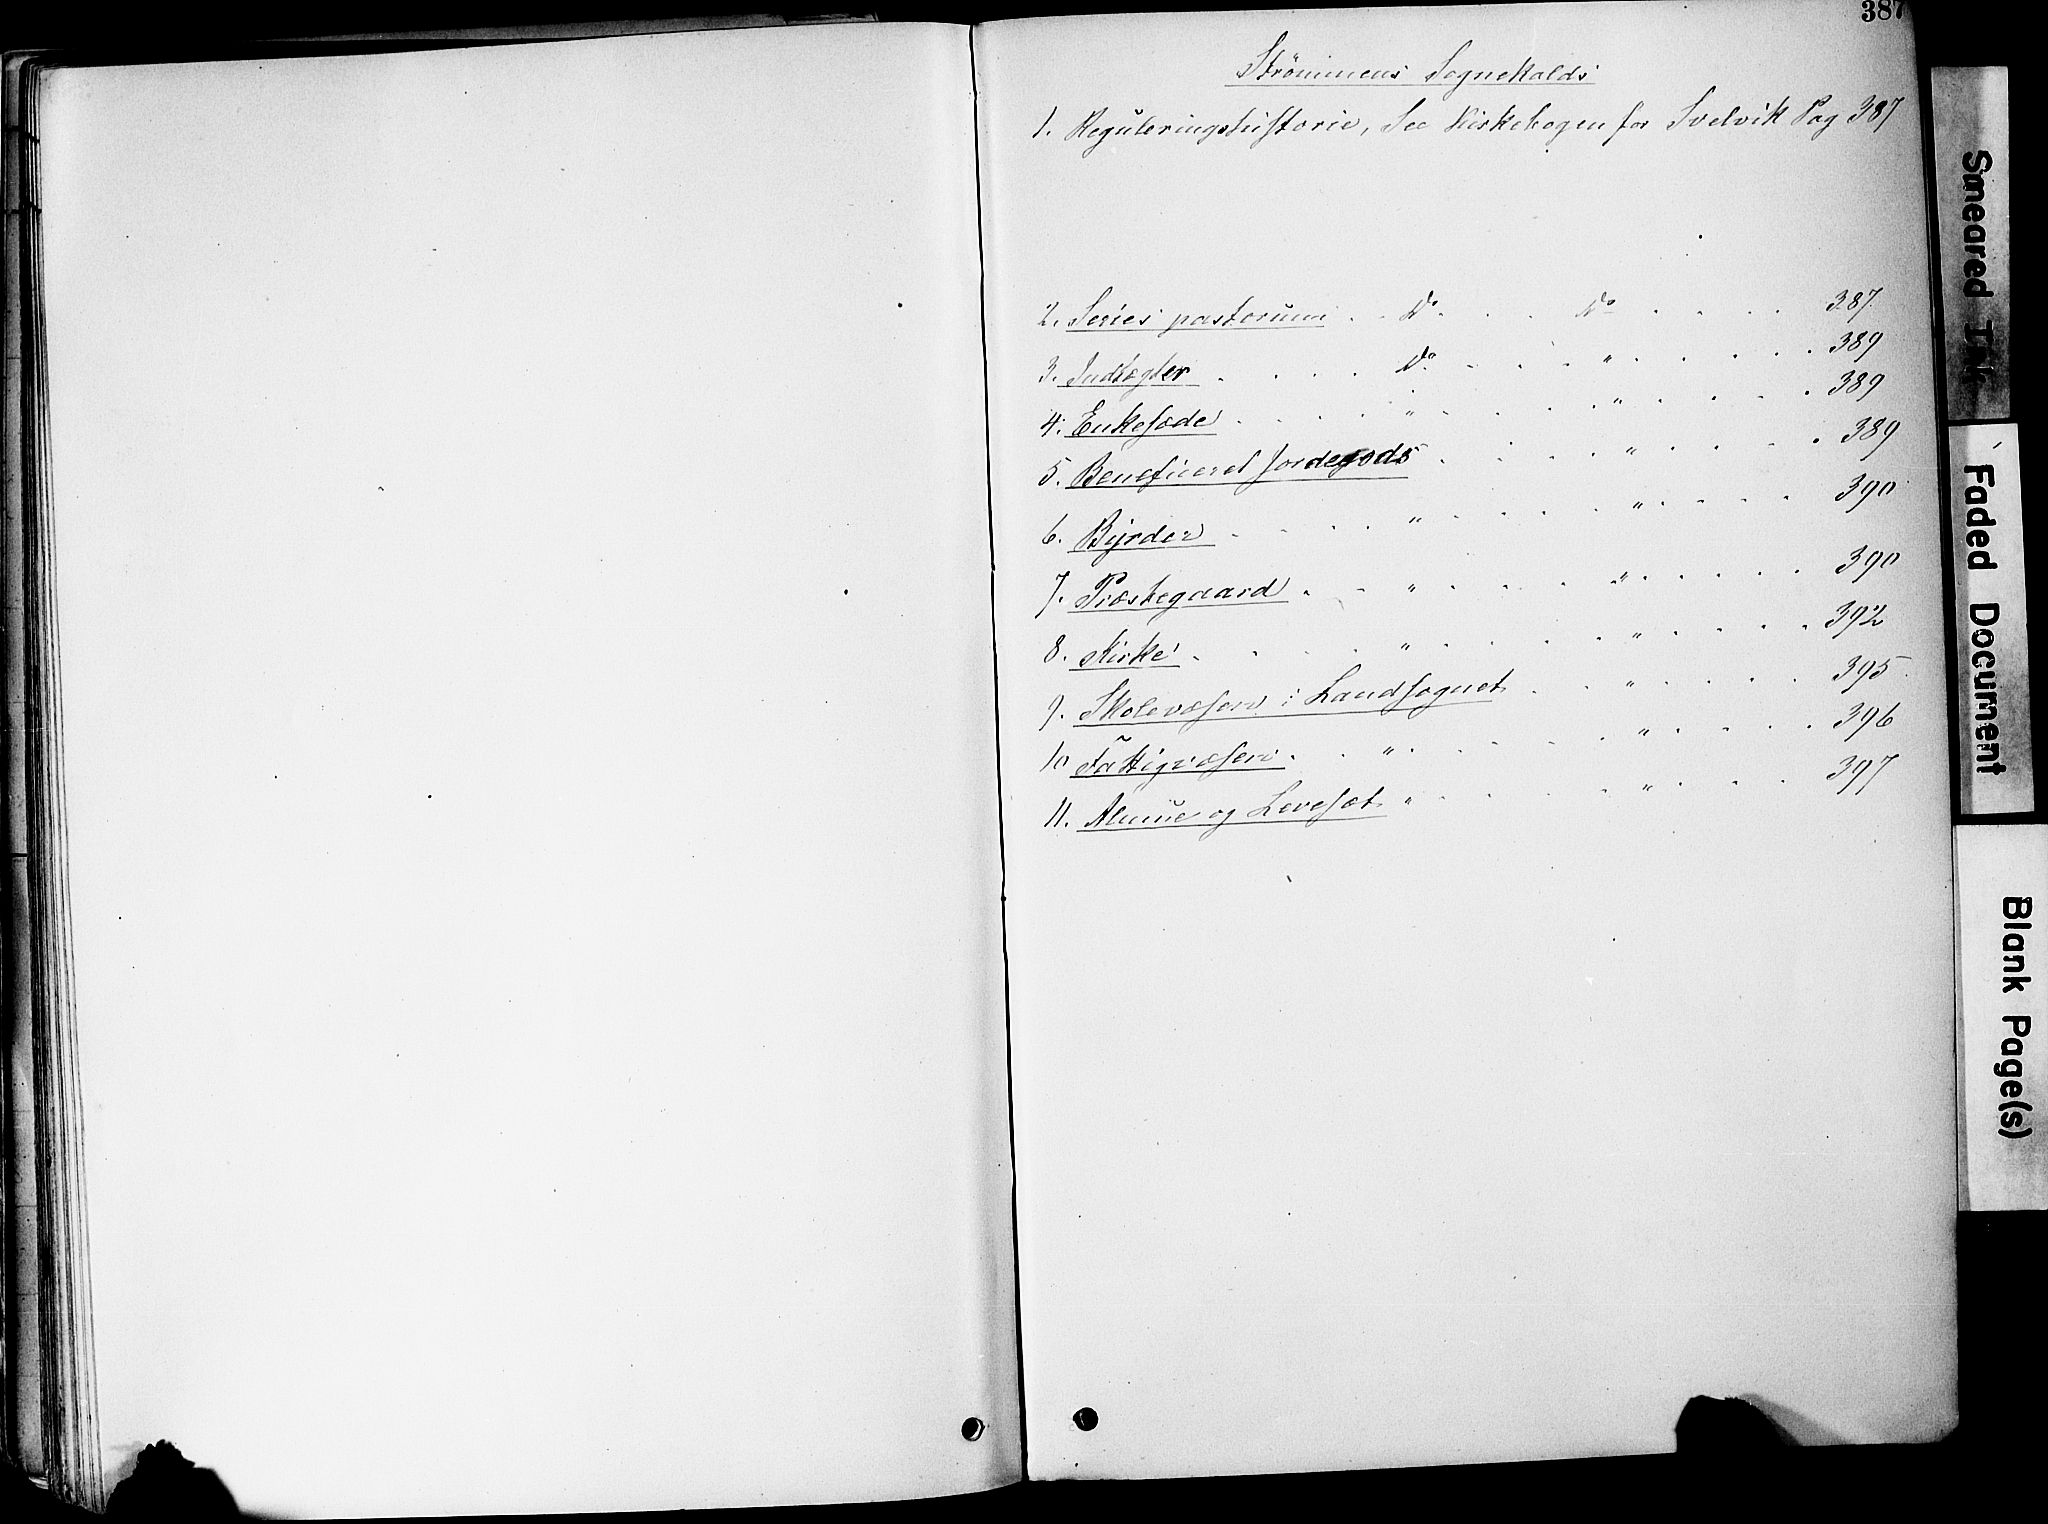 387
Strömmens Sognekalds
1. Reguleringshistorie, See Kirkebogen for Svelvik Pag 387
2. Series pastorum . . Do . . . Do . . . . 387.
3. Indtægter . . . . Do . . . " . . . . 389
4. Enkesæde . . . . " . . . . " . . . . 389
5. Beneficeret Jordegods . . . . " . . . . 389
6. Byrder . . . . " . . . . " . . . . 390
7. Præstegaard . . " . . . . " . . . . 390
8. Kirke . . . . " . . . . " . . . . 392
9. Skolevæsen i Landsognet . . " . . . . 395.
10 Fattigvæsen . . " . . . . " . . . . 396
11. Almue og Levesæt " . . . . " . . . 397
Smeared Ink
Faded Document
Blank Page(s)